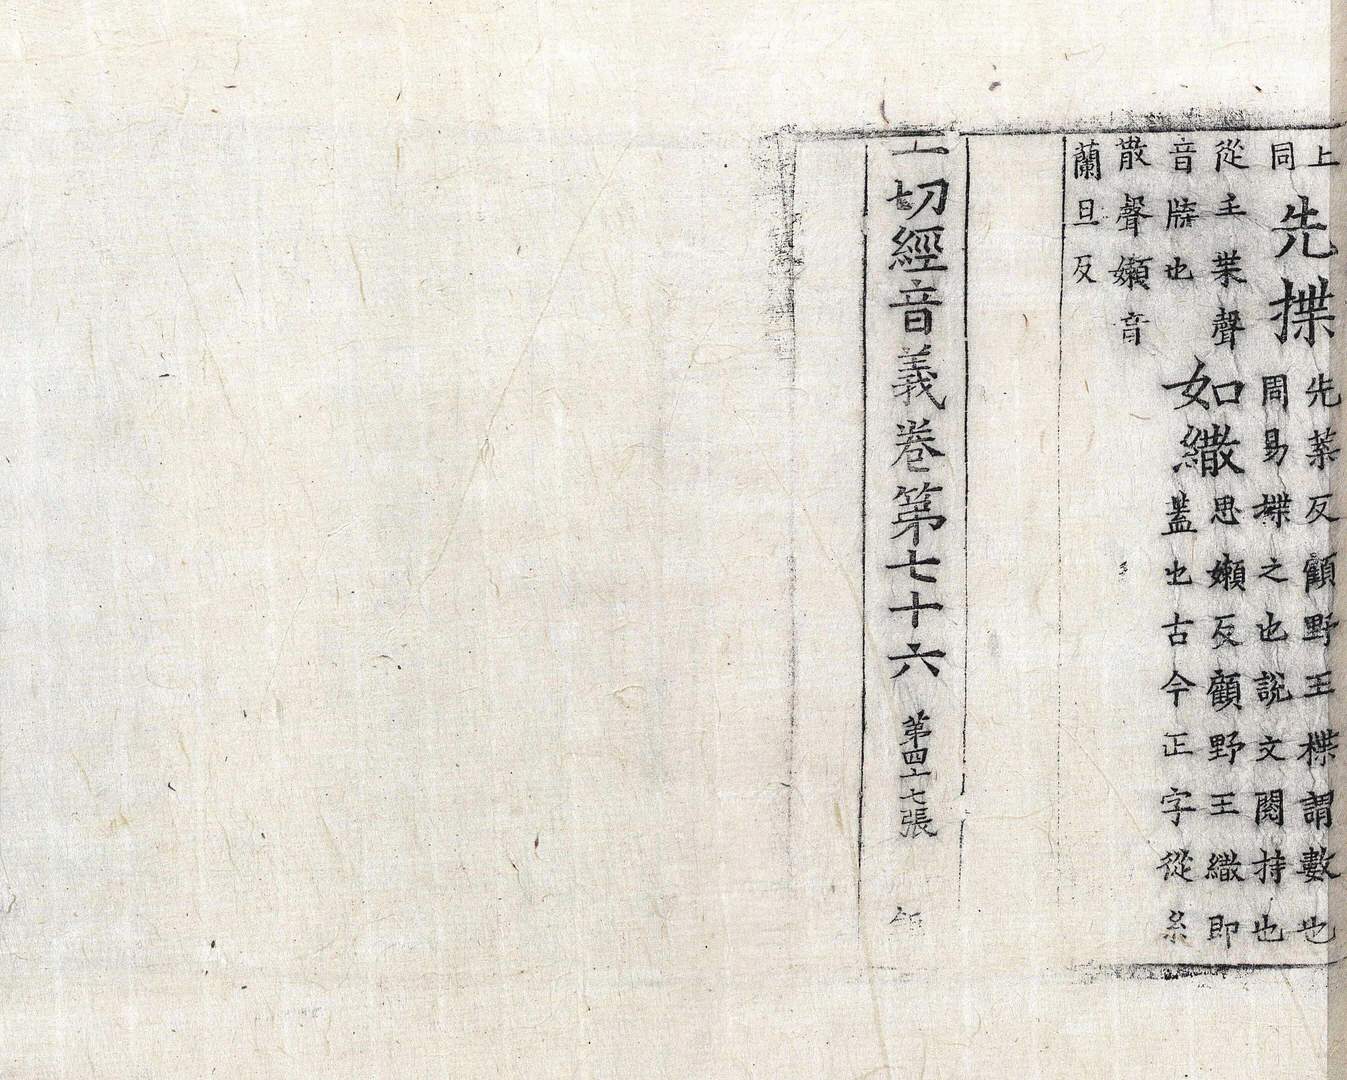 上
同
先揲
先葉反顧野王揲謂數也
周易揲之也說文閱持也
從手枼聲
音牒也
如繖
思嬾反顧野王繖即
蓋也古今正字從糸
散聲嬾音
蘭旦反
一切經音義卷第七十六 第四十七張